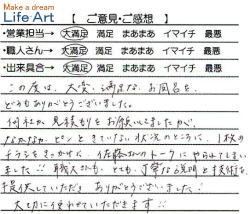 Make a dream
Life Art 【 ご意見・ご感想 】
・営業担当→ 大満足 満足 まあまあ イマイチ 最悪
・職人さん→ 大満足 満足 まあまあ イマイチ 最悪
・出来具合→ 大満足 満足 まあまあ イマイチ 最悪
この度は、大変、満足な、お風呂を、
どうもありがとうございました。
何社か見積もりをお願いしましたが、
なかなか、ピンときていない状況のところに、1枚の
チラシをきっかけに、佐藤さんのトークにやられてしまい
ました!! 職人さんも、とても、丁寧な説明と技術を
提供していただき ありがとうございました!
大切に使わせていただきます!!